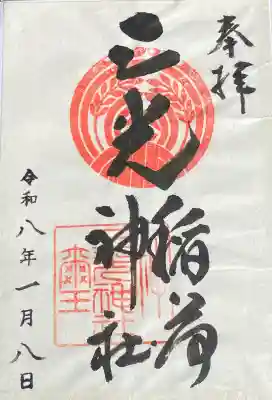 奉拝
三光
稲荷
神社
令和八年一月八日